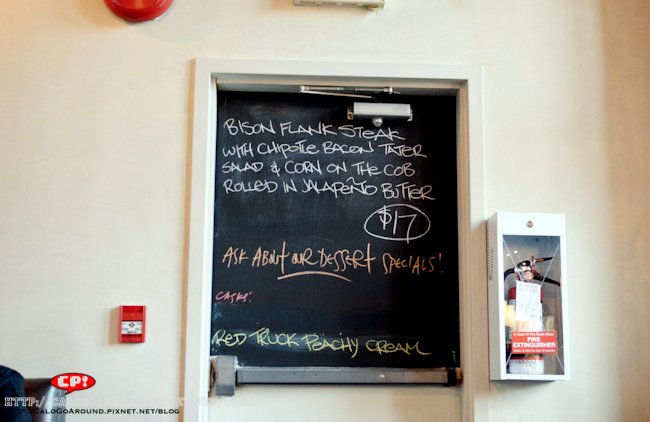 BISON FLANK STEAK
WITH CHIPOTLE BACON TATER
SALAD & CORN ON THE COB
ROLLED IN JALAPEÑO BUTTER
$17
ASK ABOUT OUR DESSERT SPECIALS!
CASKS!
RED TRUCK PEACHY CREAM
FIRE
EXTINGUISHER
CP!
HTTP://CALOGOAROUND.PIXNET.NET/BLOG